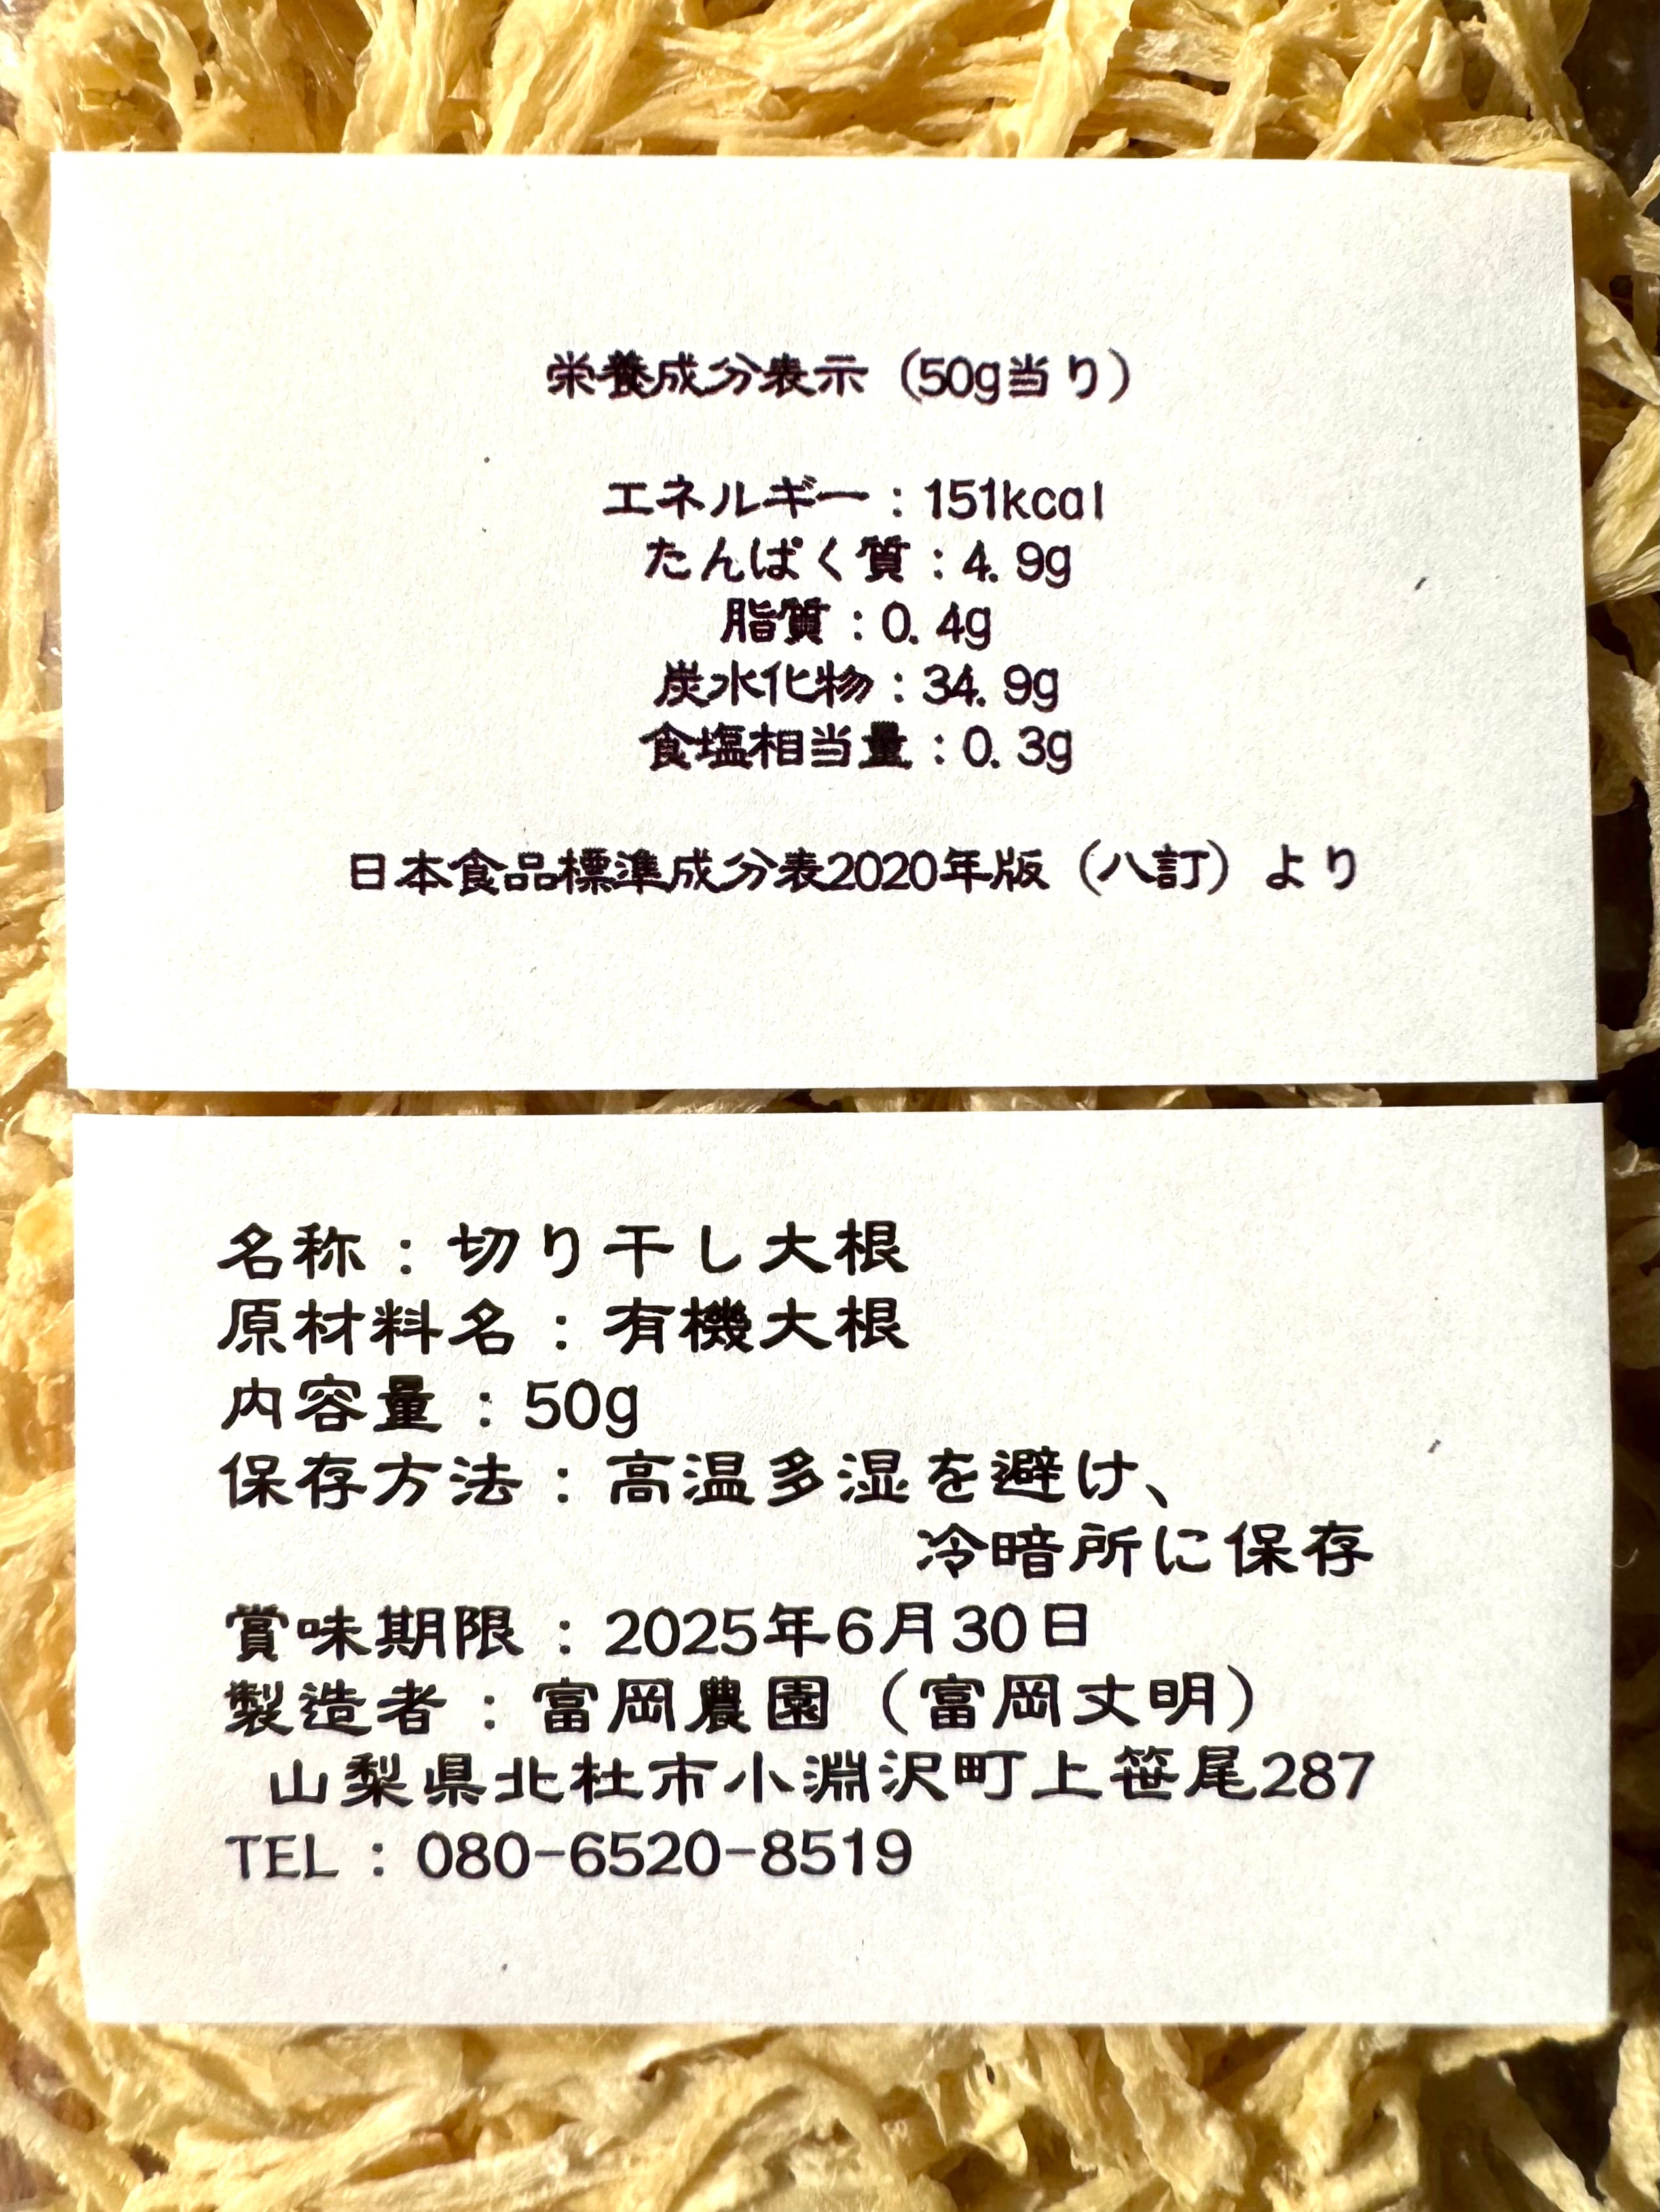 栄養成分表示（50g当り）
エネルギー：151kcal
たんぱく質：4.9g
脂質：0.4g
炭水化物：34.9g
食塩相当量：0.3g
日本食品標準成分表2020年版（八訂）より
名称：切り干し大根
原材料名：有機大根
内容量：50g
保存方法：高温多湿を避け、
冷暗所に保存
賞味期限：2025年6月30日
製造者：富岡農園（富岡丈明）
山梨県北杜市小淵沢町上笹尾287
TEL：080-6520-8519